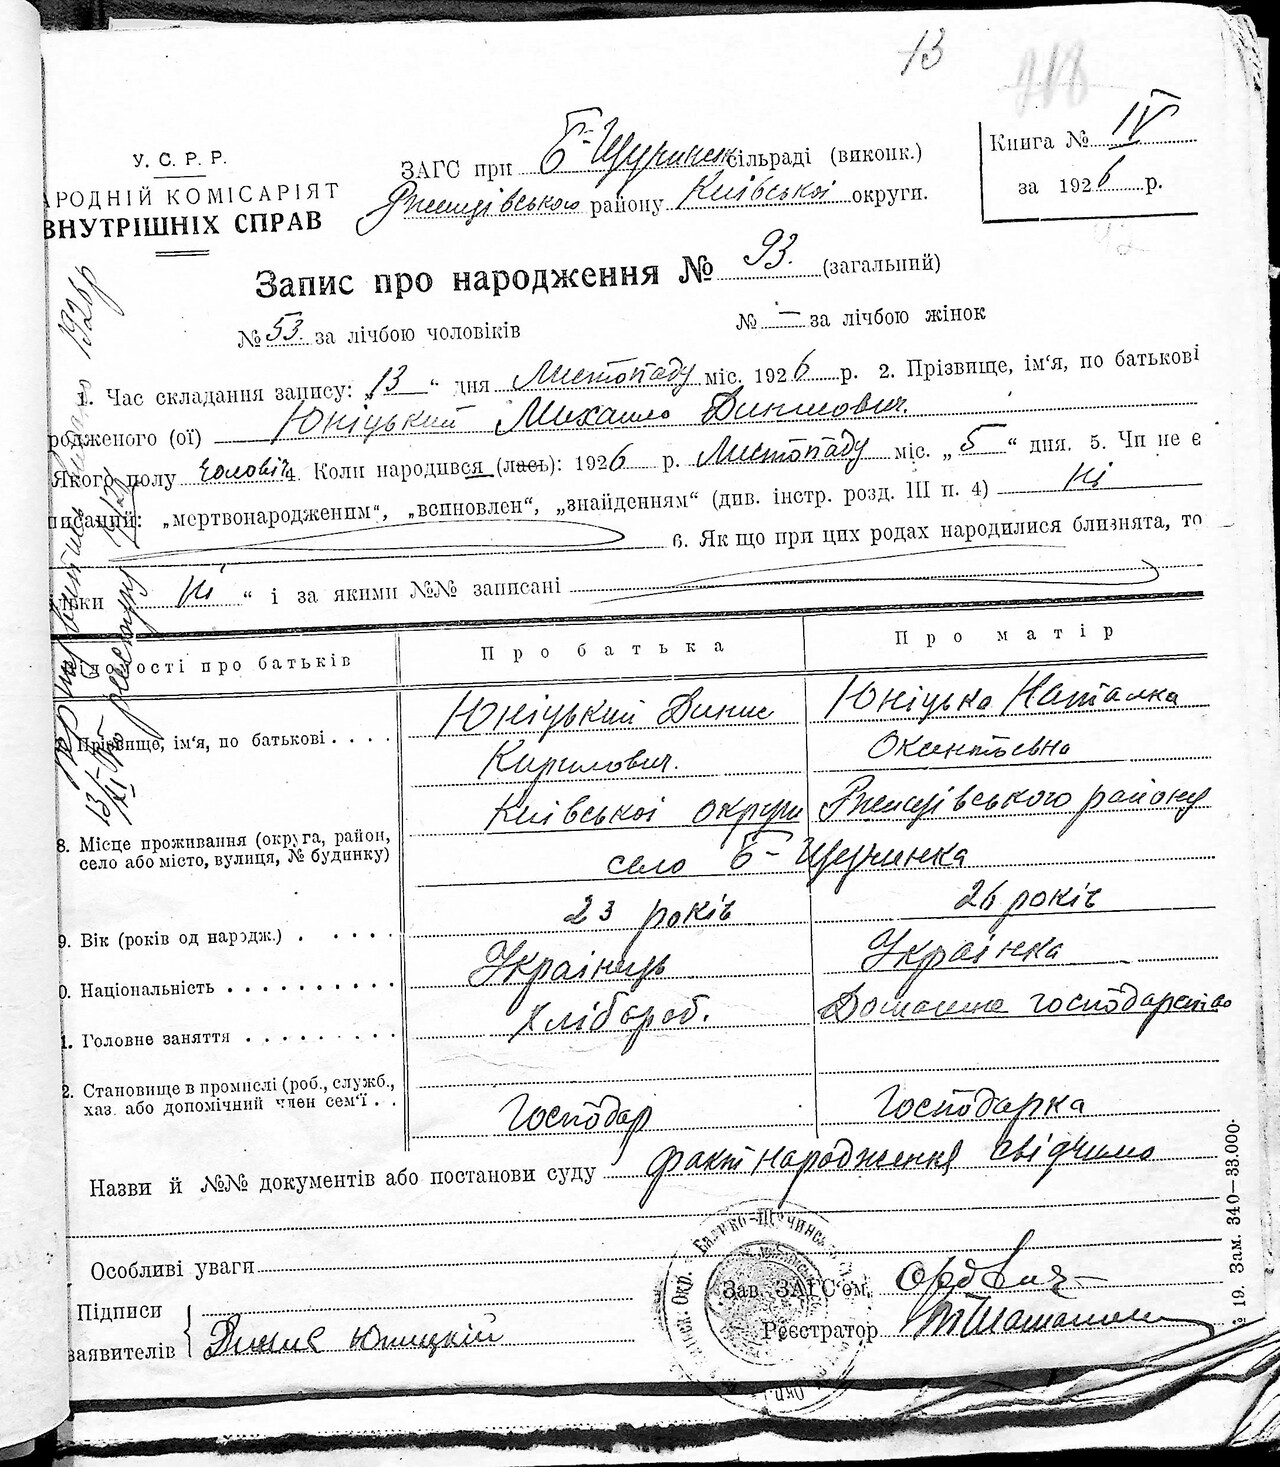 13
218
У. С. Р. Р.
АРОДНІЙ КОМІСАРІЯТ
ВНУТРІШНІХ СПРАВ
ЗАГС при Б-Щучинск сільраді (виконк.)
Ржищівського району Київської округи.
Книга № IV
за 1926 р.
Запис про народження № 93. (загальний)
№ 53. за лічбою чоловіків № — за лічбою жінок
1. Час складання запису: „13“ дня Листопаду міс. 1926 р. 2. Прізвище, ім‘я, по батькові
родженого (ої) Юніцький Михайло Динисович.
Якого полу чоловіч. 4. Коли народився (лась): 1926 р. Листопаду міс. „5“ дня. 5. Чи не є
писаний: „мертвонародженим“, „всиновлен“, „знайденням“ (див. інстр. розд. III п. 4) Ні
6. Як що при цих родах народилися близнята, то
ільки „ Ні “ і за якими №№ записані
ідомості про батьків
Про батька
Про матір
Прізвище, ім‘я, по батькові . . . .
Юніцький Динис
Кирилович.
Юніцька Наталка
Оксентьевна
8. Місце проживання (округа, район,
село або місто, вулиця, № будинку)
Київської округи Ржищівського району
село Б-Щучинка
9. Вік (років од нароdж.) . . . . .
23 років
26 років
0. Національність . . . . . . . . . .
Українець
Українка
1. Головне заняття . . . . . . . . .
Хлібороб.
Домашнє господарство
2. Становище в промислі (роб., служб.,
хаз. або допомічний член сем‘ї . .
Господар
Господарка
Назви й №№ документів або постанови суду факт народження свідчимо
Особливі уваги
Підписи
заявителів
Динис Юницкій
Зав. ЗАГС‘ом,
Реєстратор
19. Зам. 340—33.000.